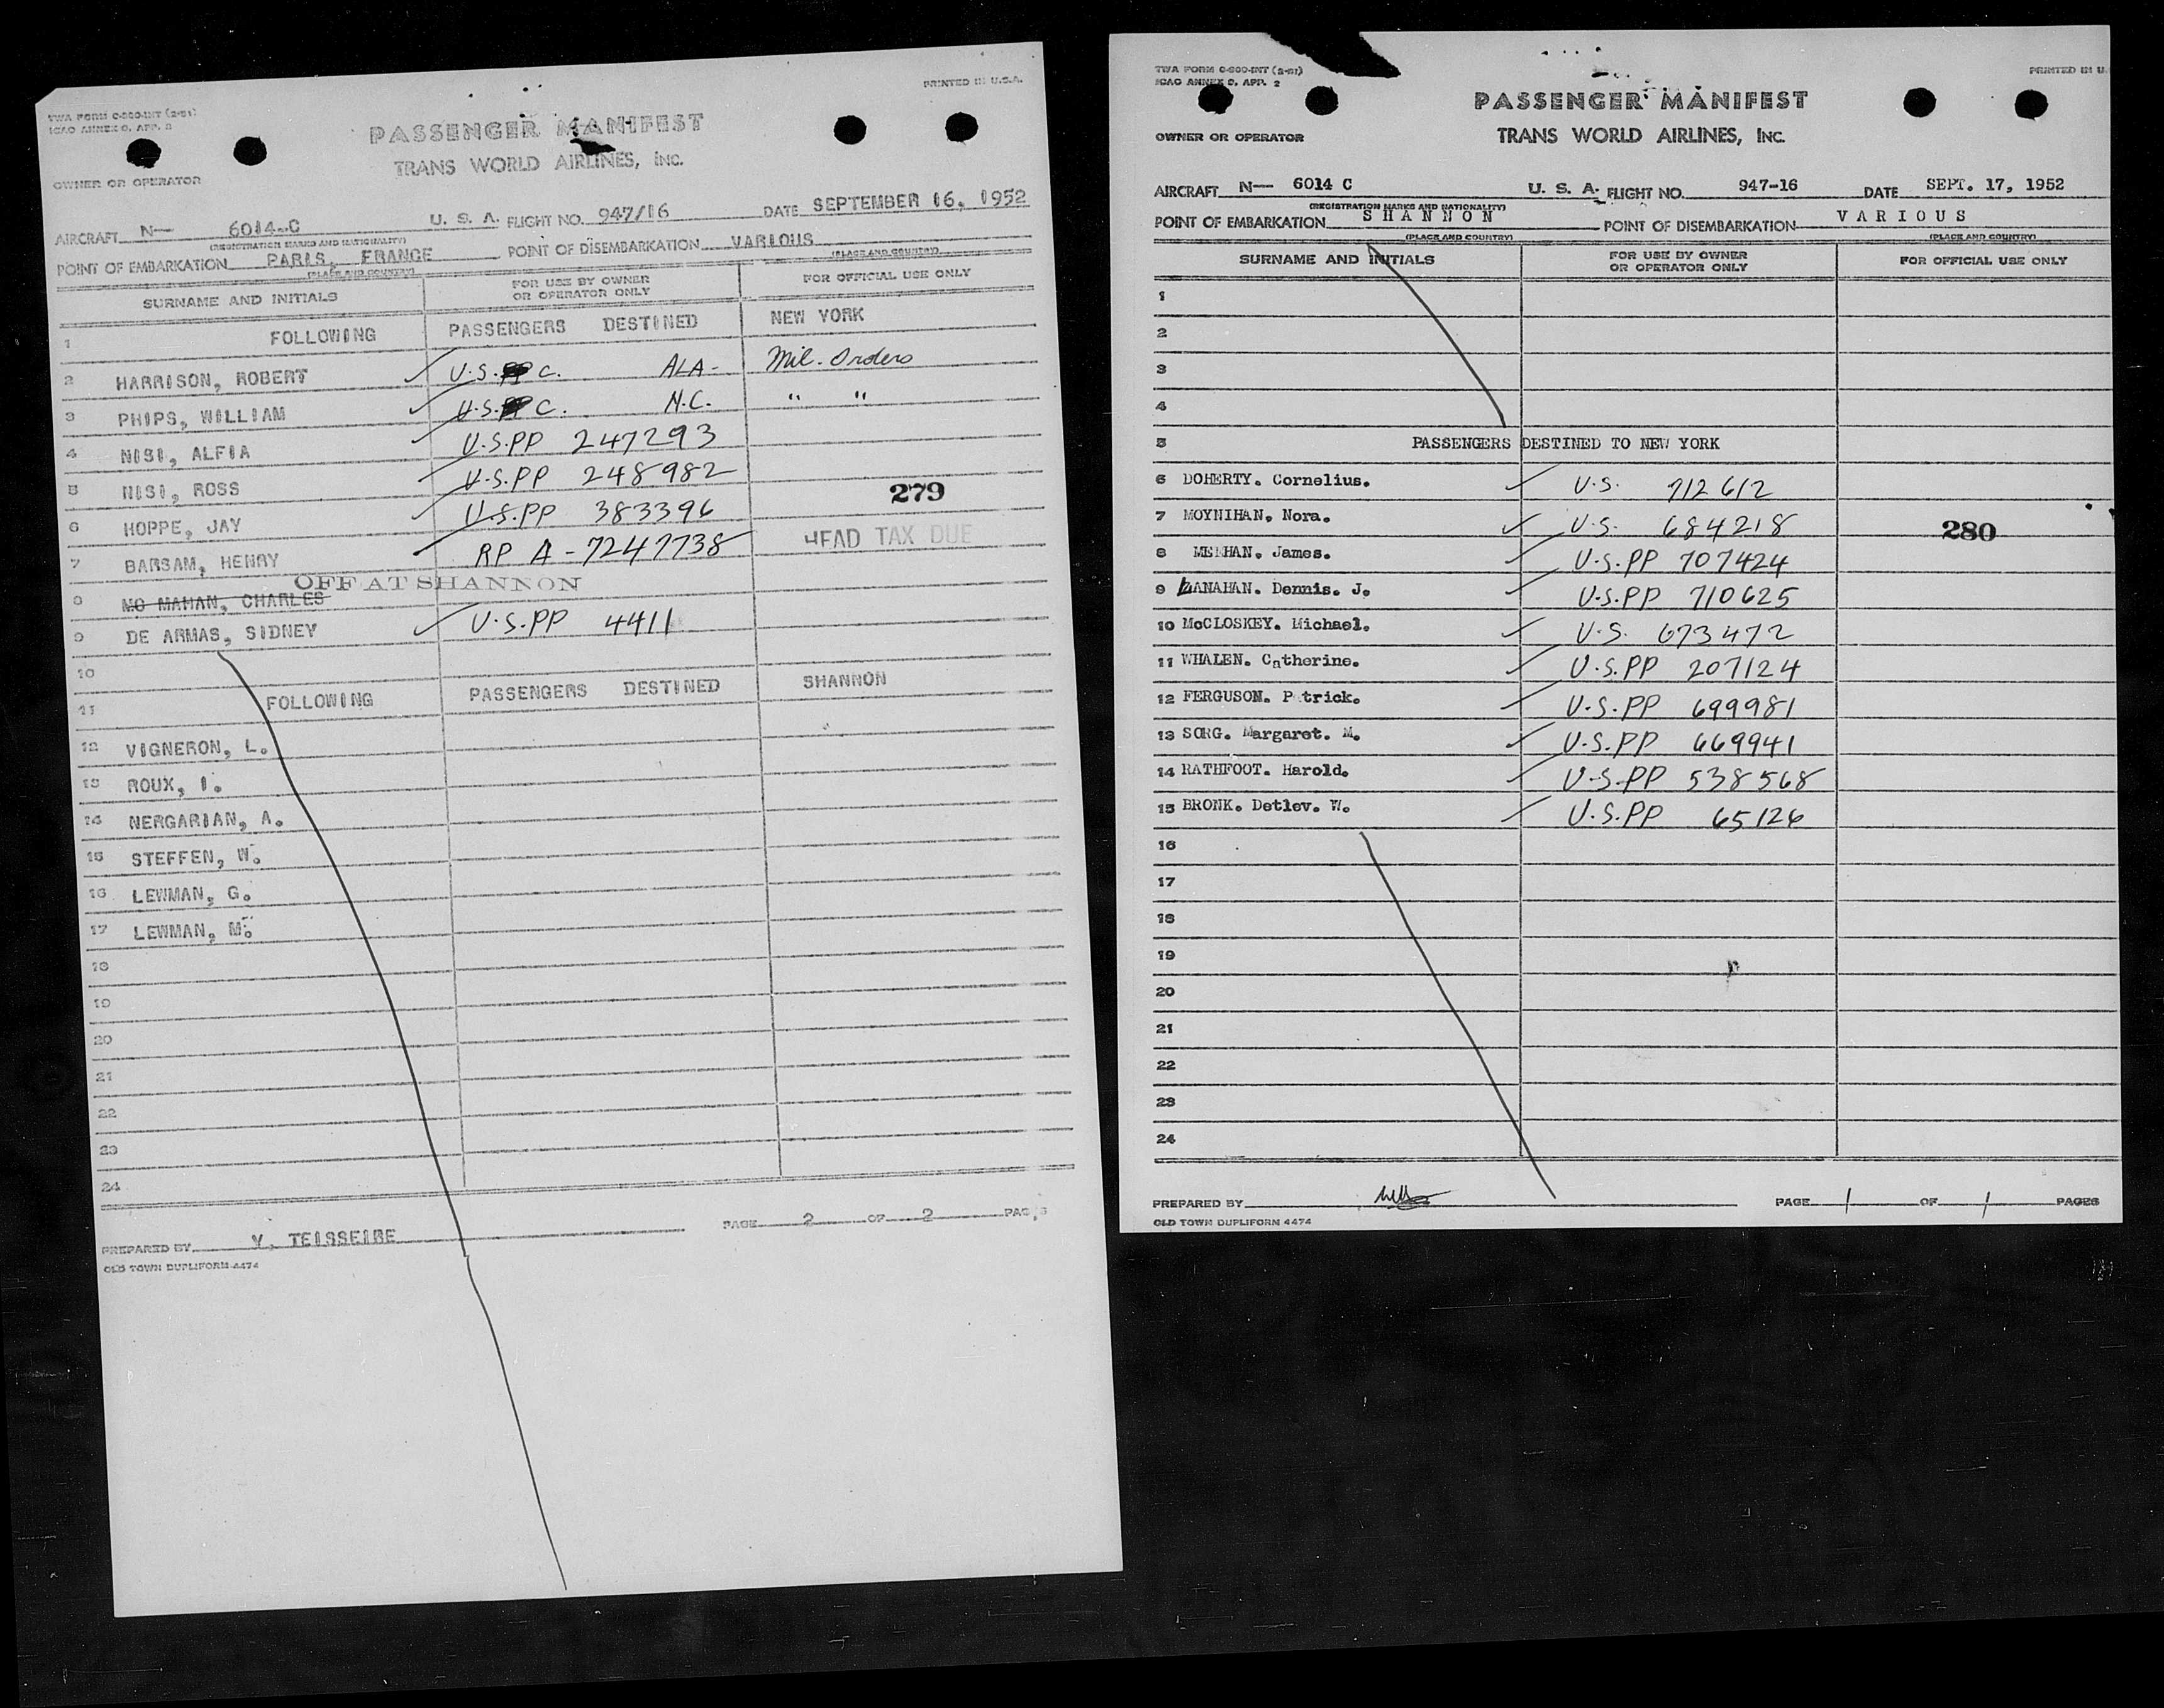 TWA FORM C-800-INT (2-51)
ICAO ANNEX 9, APP. 2
PRINTED IN U.S.A.
PASSENGER MANIFEST
TRANS WORLD AIRLINES, INC.
OWNER OR OPERATOR
AIRCRAFT N— 6014-C U. S. A. FLIGHT NO. 947/16 DATE SEPTEMBER 16, 1952
(REGISTRATION MARKS AND NATIONALITY)
POINT OF EMBARKATION PARIS, FRANCE POINT OF DISEMBARKATION VARIOUS
(PLACE AND COUNTRY) (PLACE AND COUNTRY)
SURNAME AND INITIALS FOR USE BY OWNER OR OPERATOR ONLY FOR OFFICIAL USE ONLY
1 FOLLOWING PASSENGERS DESTINED NEW YORK
2 HARRISON, ROBERT U.S. C. ALA- Mil. Orders
3 PHIPS, WILLIAM U.S. C. N.C. " "
4 NISI, ALFIA U.S.PP 247293
5 NISI, ROSS U.S.PP 248982
279
6 HOPPE, JAY U.S.PP 383396
7 BARSAM, HENRY RP A-7247738 HEAD TAX DUE
OFF AT SHANNON
8 MC MAHAN, CHARLES
9 DE ARMAS, SIDNEY U.S.PP 4411
10
11 FOLLOWING PASSENGERS DESTINED SHANNON
12 VIGNERON, L.
13 ROUX, I.
14 NERGARIAN, A.
15 STEFFEN, W.
16 LEWMAN, G.
17 LEWMAN, M.
18
19
20
21
22
23
24
PREPARED BY Y. TEISSEIRE PAGE 2 OF 2 PAGES
OLD TOWN DUPLIFORM 4474
TWA FORM C-800-INT (2-51)
ICAO ANNEX 9, APP. 2
PRINTED IN U.
PASSENGER MANIFEST
OWNER OR OPERATOR
TRANS WORLD AIRLINES, INC.
AIRCRAFT N— 6014 C U. S. A. FLIGHT NO. 947-16 DATE SEPT. 17, 1952
(REGISTRATION MARKS AND NATIONALITY)
POINT OF EMBARKATION SHANNON POINT OF DISEMBARKATION VARIOUS
(PLACE AND COUNTRY) (PLACE AND COUNTRY)
SURNAME AND INITIALS FOR USE BY OWNER OR OPERATOR ONLY FOR OFFICIAL USE ONLY
1
2
3
4
5 PASSENGERS DESTINED TO NEW YORK
6 DOHERTY. Cornelius. U.S. 712612
7 MOYNIHAN. Nora. U.S. 684218 280
8 MEEHAN. James. U.S.PP 707424
9 LANAHAN. Dennis. J. U.S.PP 710625
10 McCLOSKEY. Michael. U.S. 673472
11 WHALEN. Catherine. U.S.PP 207124
12 FERGUSON. P trick. U.S.PP 699981
13 SORG. Margaret. M. U.S.PP 669941
14 RATHFOOT. Harold. U.S.PP 538568
15 BRONK. Detlev. W. U.S.PP 65126
16
17
18
19
20
21
22
23
24
PREPARED BY PAGE 1 OF 1 PAGES
OLD TOWN DUPLIFORM 4474